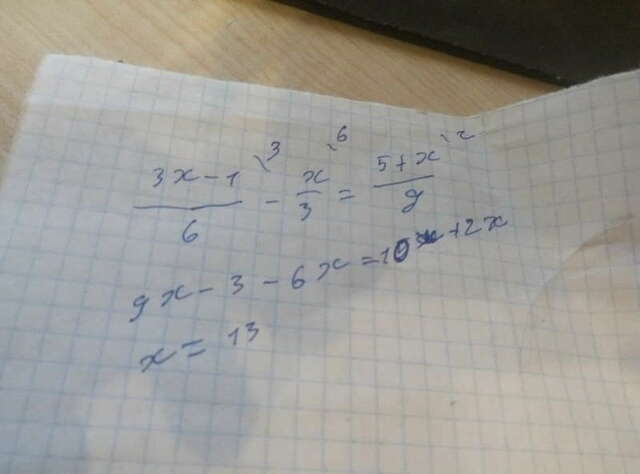 (3x-1)/6 \3 - x/3 \6 = (5+x)/9 \2
9x-3-6x=10+2x
x=13